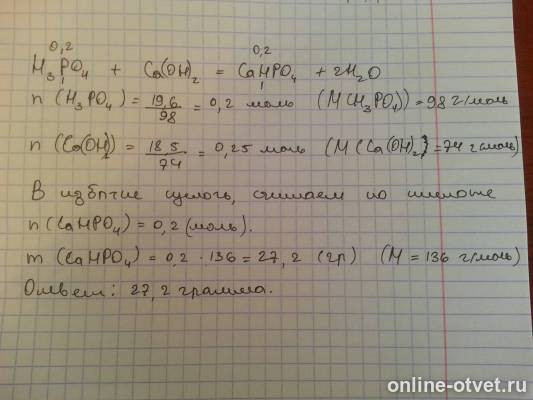 0,2 0,2
H3PO4 + Ca(OH)2 = CaHPO4 + 2H2O
1 1
n (H3PO4) = 19,6/98 = 0,2 моль (M(H3PO4)) = 98 г/моль
n (Ca(OH)2) = 18,5/74 = 0,25 моль (M(Ca(OH)2) = 74 г/моль)
В избытке щелочь, считаем по кислоте
n(CaHPO4) = 0,2 (моль).
m (CaHPO4) = 0,2 · 136 = 27,2 (гр) (M = 136 г/моль)
Ответ: 27,2 грамма.
online-otvet.ru